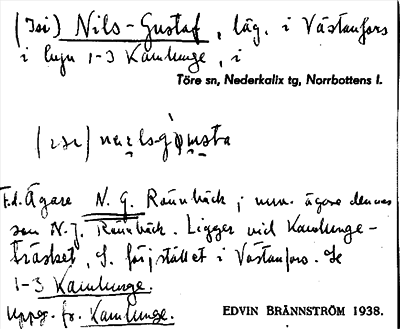 (Isi) Nils-Gustaf, läg. i Västanfors
i byn 1-3 Kamlunge, i
Töre sn, Nederkalix tg, Norrbottens l.
F.d. Ägare N. G. Rönnbäck; nuv. ägare dennes
son N. J. Rönnbäck. Ligger vid Kamlunge-
träsket, S. förj stället i Västanfors. Se
1-3 Kamlunge.
Uppg. fr. Kamlunge.
EDVIN BRÄNNSTRÖM 1938.